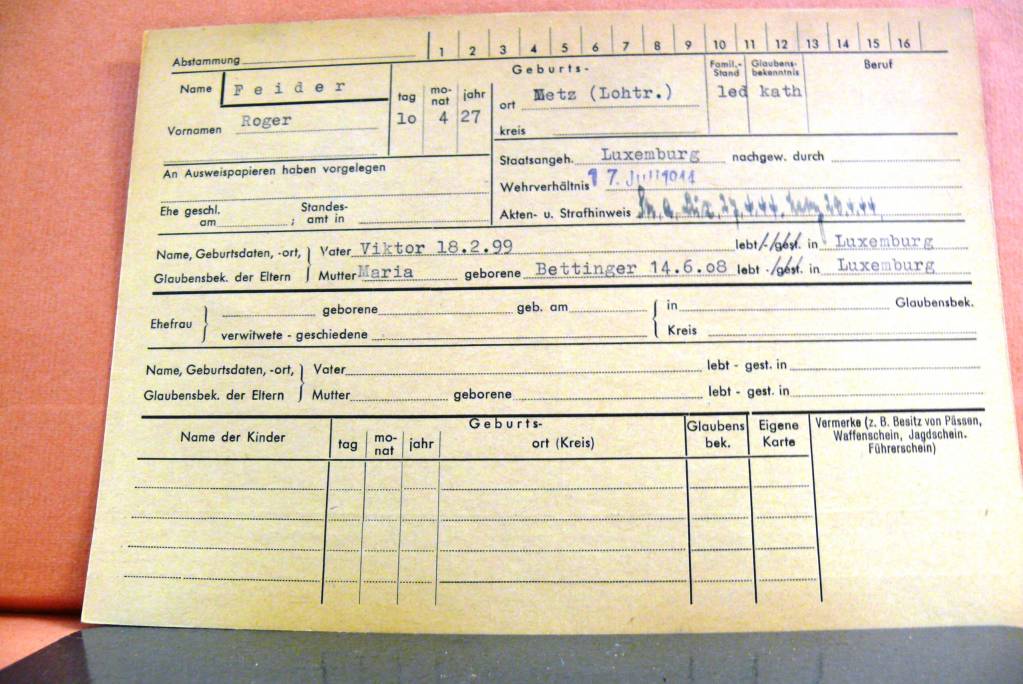 Abstammung 1 2 3 4 5 6 7 8 9 10 11 12 13 14 15 16
Name Feider
Vornamen Roger
An Ausweispapieren haben vorgelegen
Ehe geschl. am ; Standes- amt in
Geburts-
tag mo- nat jahr
lo 4 27
ort Metz (Lohtr.)
kreis
Famil.- Stand Glaubens- bekenntnis Beruf
led kath
Staatsangeh. Luxemburg nachgew. durch
Wehrverhältnis 17. Juli 1944
Akten- u. Strafhinweis
Name, Geburtsdaten, -ort, Vater Viktor 18.2.99 lebt-/gest. in Luxemburg
Glaubensbek. der Eltern Mutter Maria geborene Bettinger 14.6.08 lebt -/gest. in Luxemburg
Ehefrau geborene geb. am in Glaubensbek.
verwitwete - geschiedene Kreis
Name, Geburtsdaten, -ort, Vater lebt - gest. in
Glaubensbek. der Eltern Mutter geborene lebt - gest. in
Name der Kinder
Geburts-
tag mo- nat jahr ort (Kreis)
Glaubens bek.
Eigene Karte
Vermerke (z. B. Besitz von Pässen,
Waffenschein, Jagdschein.
Führerschein)